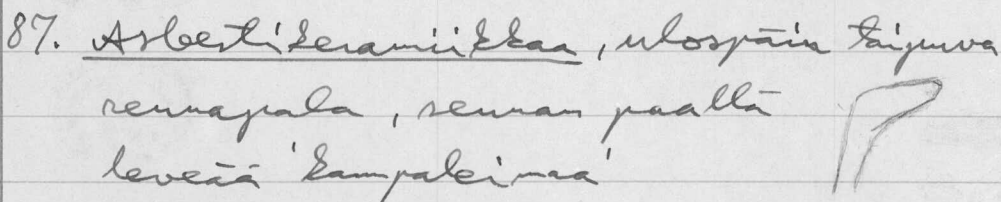 87. Asbestikeramiikkaa, ulospäin taipuva
reunapala, reunan päällä
leveää kampaleimaa